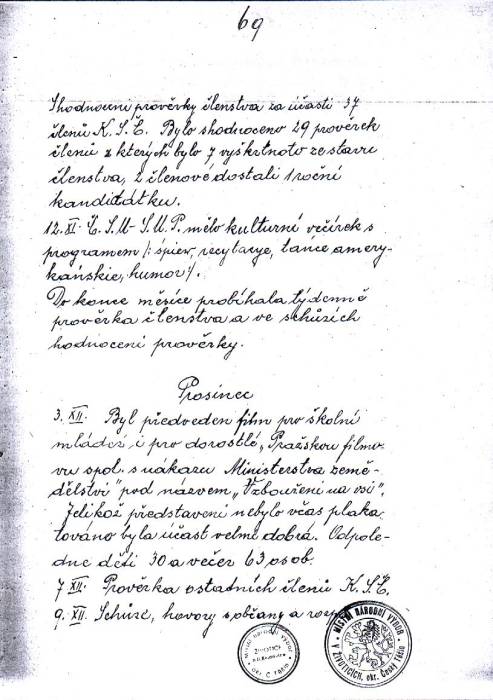 69
Shodnocení prověrky členstva za účasti 37
členů K.S.Č. Bylo shodnoceno 29 prověrek
členů z kterých bylo 7 vyškrtnoto ze stavu
členstva, 2 členové dostali 1 roční
kandidátku.
12. XI. Č.S.M. - S.M.P. mělo kulturní večírek s
programem /: śpiew, recytacye, tańce amery-
kańskie, humor :/.
Do konce měsíce probíhala týdenně
prověrka členstva a ve schůzích
hodnocení prověrky.
Prosinec
3. XII. Byl předveden film pro školní
mládež i pro dorostlé „Pražskou filmo-
vu spol. s nákazu Ministerstva země-
dělství" pod názvem „Vzbouření na vsi".
Jelikož představení nebylo včas plaka-
továno byla účast velmi dobrá. Odpole-
dne děti 30 a večer 63 osob.
7. XII. Prověrka ostatních členů K.S.Č.
9. XII. Schůze, hovory s občany a
MÍSTNÍ NÁRODNÍ VÝBOR
V ŽIVOTICÍCH, okr. Český Těšín
Místní národní výbor
ŽIVOTICE
okr. Č. Těšín